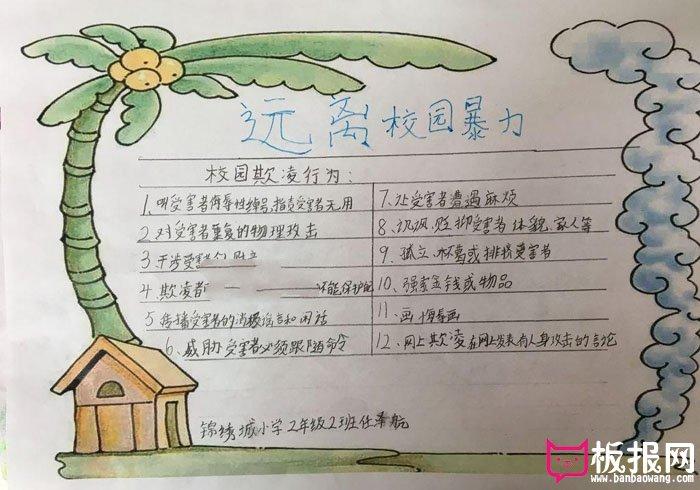 远离校园暴力
校园欺凌行为:
1.叫受害者侮辱性绰号,指责受害者无用
2.对受害者重复的物理攻击
3.干涉受害
4.欺凌者 不能保护
5.传播受害者的消极谣言和闲话
6.威胁受害者必须跟随命令
7.让受害者遭遇麻烦
8.讥讽.贬抑受害者体貌.家人等
9.孤立.杯葛或排挤受害者
10.强索金钱或物品
11.画侮辱画
12.网上欺凌在网上发表有人身攻击的言论
锦绣城小学2年级2班任泽航
板报网
www.banbaowang.com